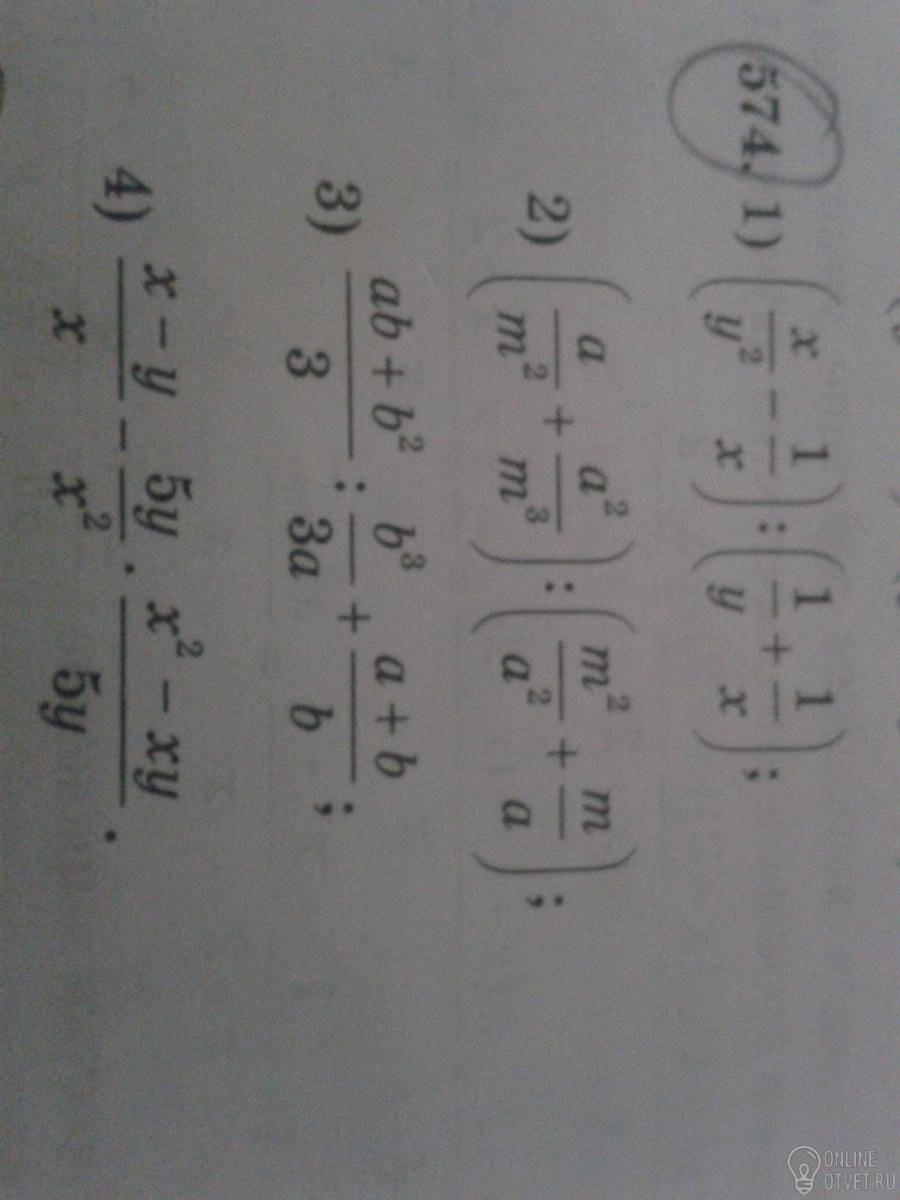 574. 1) (x/y² − 1/x) : (1/y + 1/x);
2) (a/m² + a²/m³) : (m²/a² + m/a);
3) (ab + b²)/3 : b³/3a + (a + b)/b;
4) (x − y)/x − 5y/x² · (x² − xy)/5y.
ONLINE
OTVET.RU